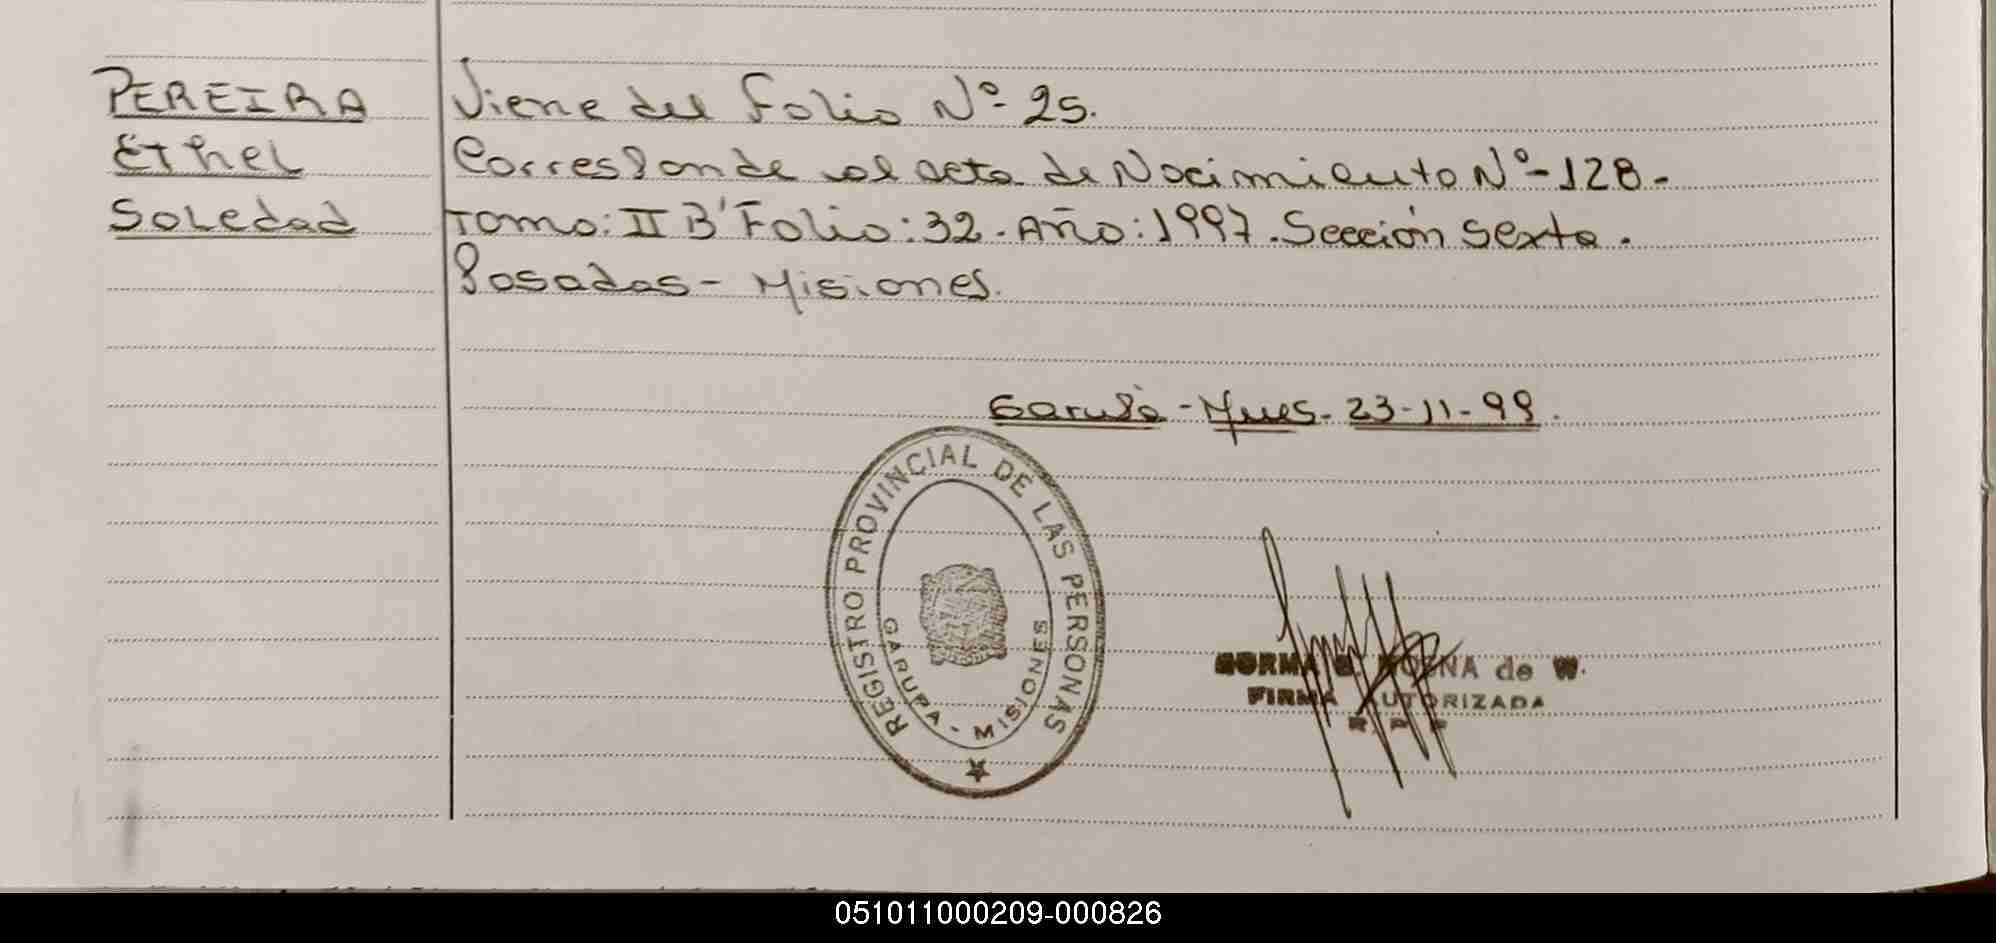 PEREIRA
Ethel
Soledad
Viene del Folio Nº 25.
Corresponde al acta de Nacimiento Nº-128-
Tomo: II B' Folio: 32. Año: 1997. Sección Sexta.
Posadas - Misiones.
Garupá - Mnes. 23-11-99.
REGISTRO PROVINCIAL DE LAS PERSONAS
GARUPA - MISIONES
NORMA de W.
FIRMA AUTORIZADA
R. P. P
051011000209-000826